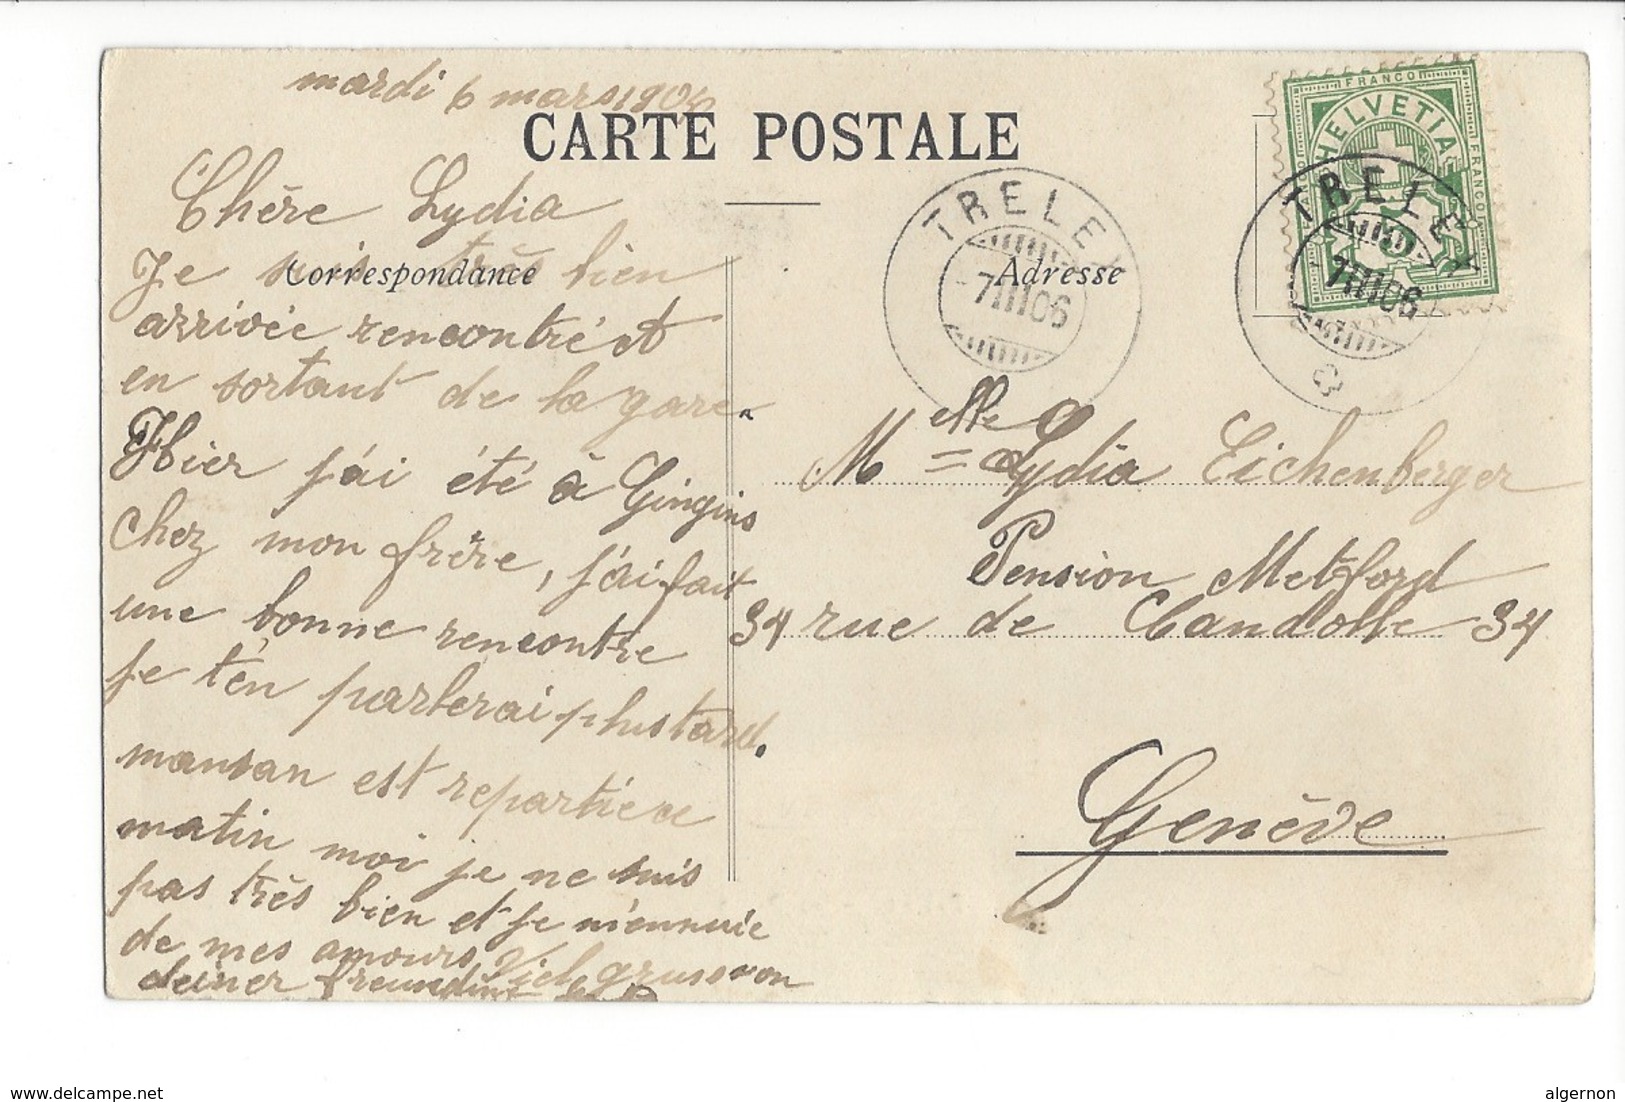 mardi 6 mars 1906
CARTE POSTALE
Chère Lydia
Je suis très bien
Correspondance
arrivée rencontré et
en sortant de la gare.
Hier j'ai été à Gingins
chez mon frère, j'ai fait
une bonne rencontre
je t'en parlerai plustard.
manan est repartie ce
matin moi je ne suis
pas très bien et je m'ennuie
de mes amours, Viel gruss von
deiner freundin
TRELEX
-7III06
Adresse
FRANCO
HELVETIA
FRANCO
FRANCO
5
TRELEX
-7III06
Melle Lydia Eichenberger
Pension Metford
34 rue de Candolle 34
Genève
https://www.delcampe.net
algernon